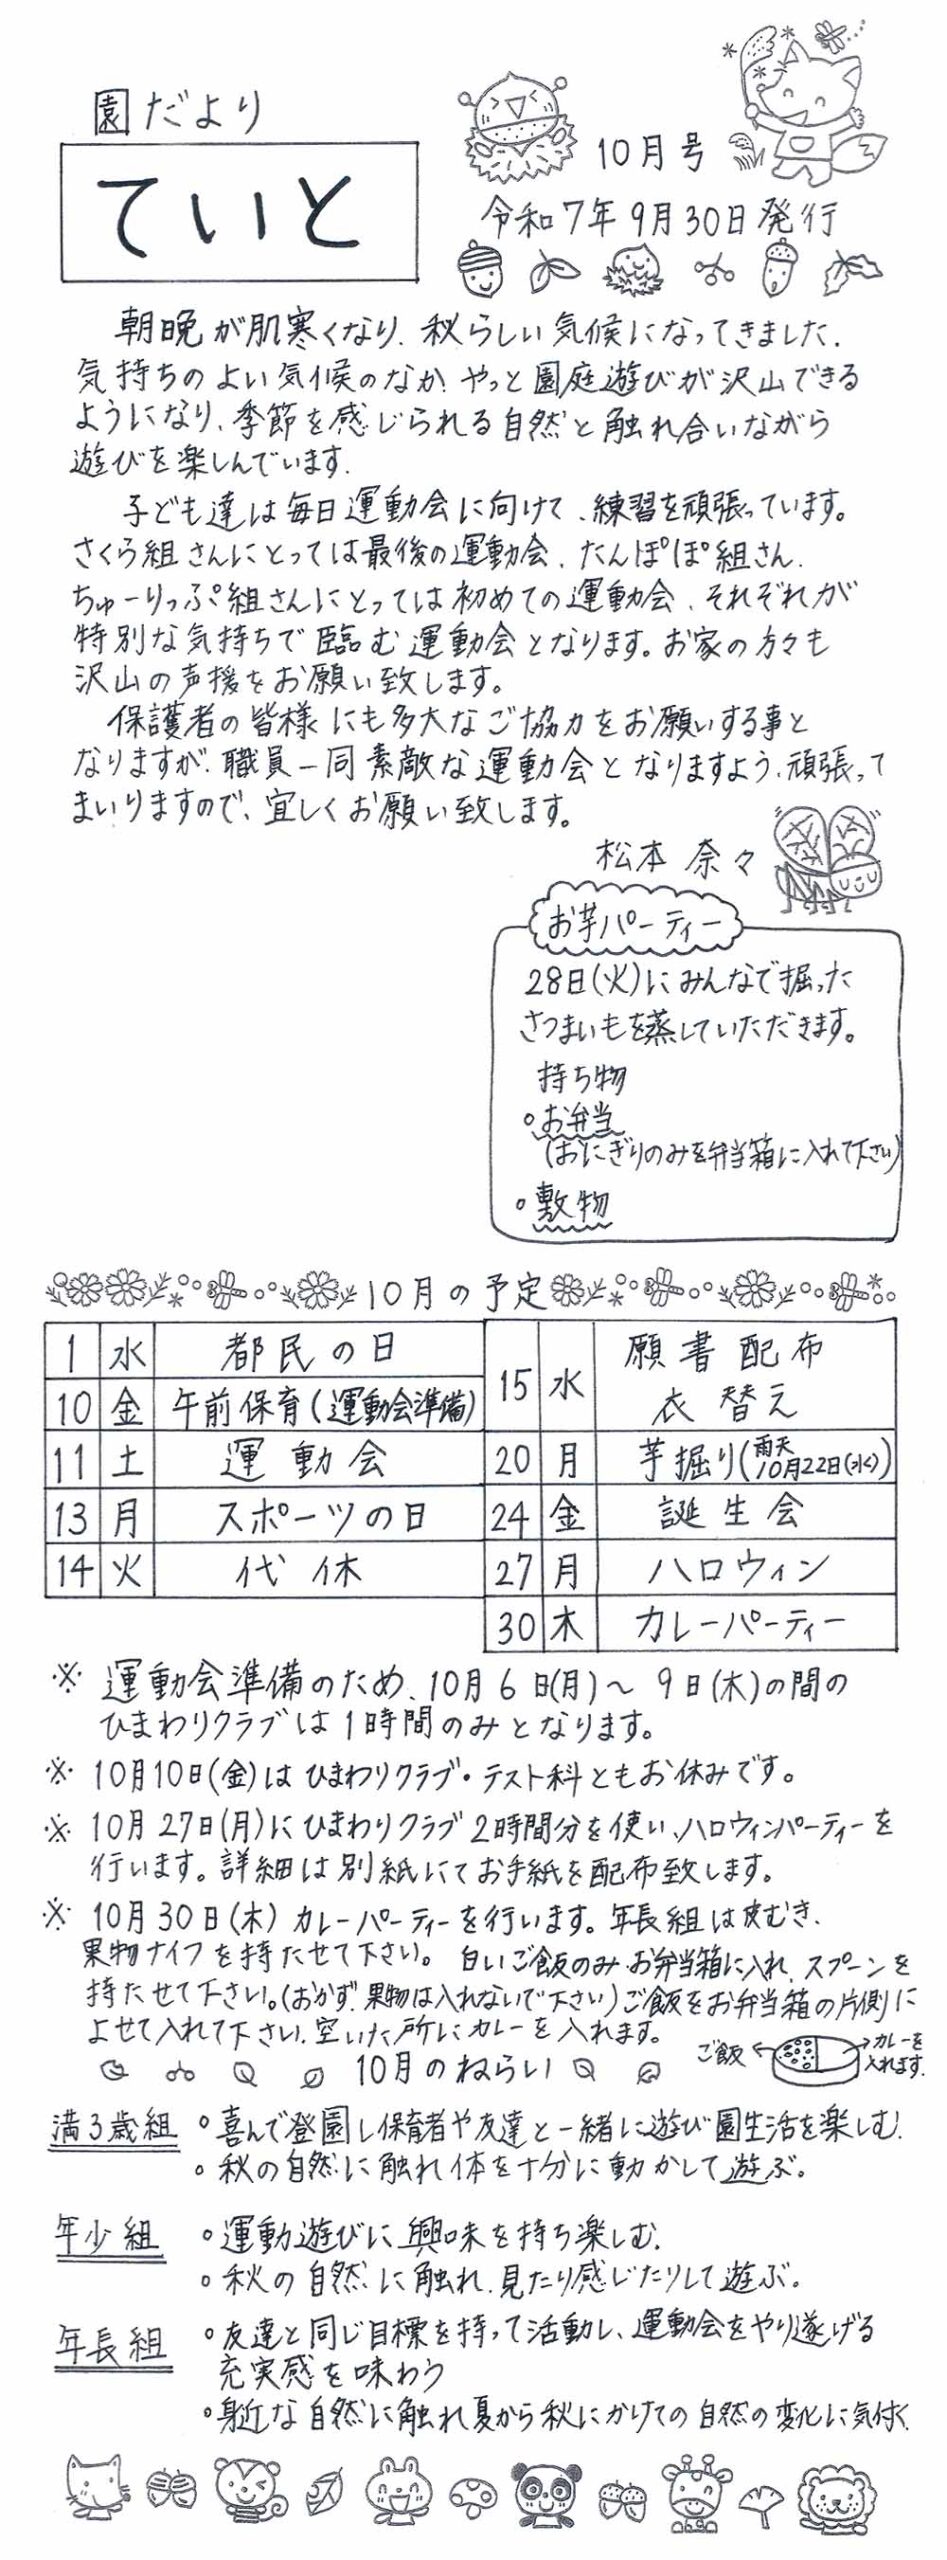 園だより
ていと
10月号
令和7年9月30日発行
朝晩が肌寒くなり、秋らしい気候になってきました。
気持ちのよい気候のなか、やっと園庭遊びが沢山できる
ようになり、季節を感じられる自然と触れ合いながら
遊びを楽しんでいます。
子ども達は毎日運動会に向けて、練習を頑張っています。
さくら組さんにとっては最後の運動会、たんぽぽ組さん、
ちゅーりっぷ組さんにとっては初めての運動会、それぞれが
特別な気持ちで臨む運動会となります。お家の方々も
沢山の声援をお願い致します。
保護者の皆様にも多大なご協力をお願いする事と
なりますが、職員一同素敵な運動会となりますよう、頑張って
まいりますので、宜しくお願い致します。
松本 奈々
お芋パーティー
28日(火)にみんなで掘った
さつまいもを蒸していただきます。
持ち物
○お弁当
(おにぎりのみを弁当箱に入れて下さい)
○敷物
10月の予定
1 水 都民の日
10 金 午前保育(運動会準備)
11 土 運動会
13 月 スポーツの日
14 火 代休
15 水 願書配布
衣替え
20 月 芋掘り(雨天10月22日(水))
24 金 誕生会
27 月 ハロウィン
30 木 カレーパーティー
※ 運動会準備のため、10月6日(月)～9日(木)の間の
ひまわりクラブは1時間のみとなります。
※ 10月10日(金)はひまわりクラブ・テスト科ともお休みです。
※ 10月27日(月)にひまわりクラブ2時間分を使い、ハロウィンパーティーを
行います。詳細は別紙にてお手紙を配布致します。
※ 10月30日(木)カレーパーティーを行います。年長組は皮むき、
果物ナイフを持たせて下さい。白いご飯のみお弁当箱に入れ、スプーンを
持たせて下さい。(おかず、果物は入れないで下さい)ご飯をお弁当箱の片側に
よせて入れて下さい。空いた所にカレーを入れます。
ご飯
カレーを
入れます。
10月のねらい
満3歳組 ○喜んで登園し保育者や友達と一緒に遊び園生活を楽しむ。
○秋の自然に触れ体を十分に動かして遊ぶ。
年少組 ○運動遊びに興味を持ち楽しむ。
○秋の自然に触れ、見たり感じたりして遊ぶ。
年長組 ○友達と同じ目標を持って活動し、運動会をやり遂げる
充実感を味わう
○身近な自然に触れ夏から秋にかけての自然の変化に気付く。